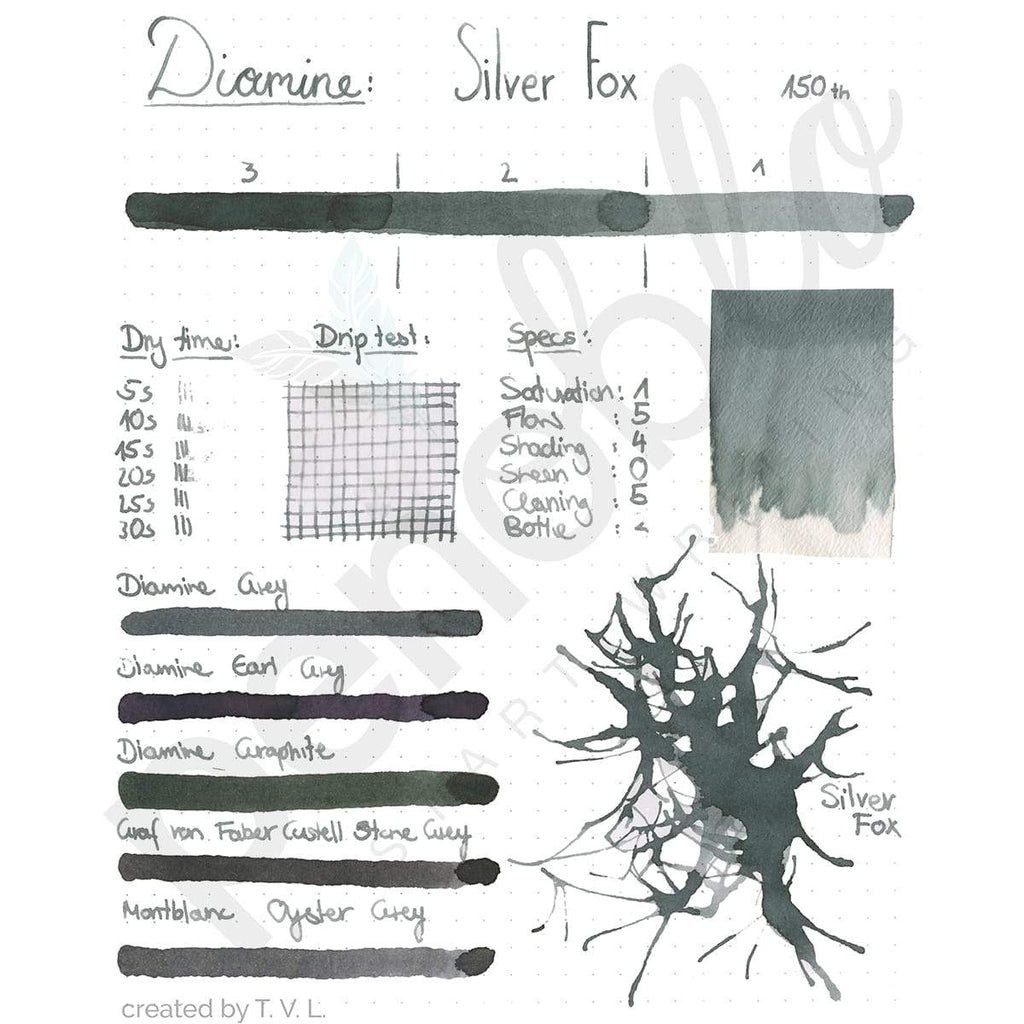 Diamine: Silver Fox 150th
3 2 1
Dry time: Drip test: Specs:
5s
10s
15s
20s
25s
30s
Saturation: 1
Flow : 5
Shading : 4
Sheen : 0
Cleaning : 5
Bottle :
Diamine Grey
Diamine Earl Grey
Diamine Graphite
Graf von Faber Castell Stone Grey
Montblanc Oyster Grey
Silver
Fox
created by T. V. L.
penoblo
SMART WRITING